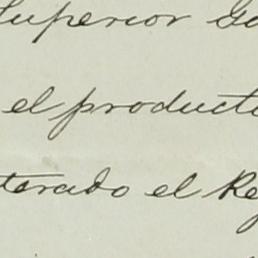 Superior Go
el producto
terado el Re